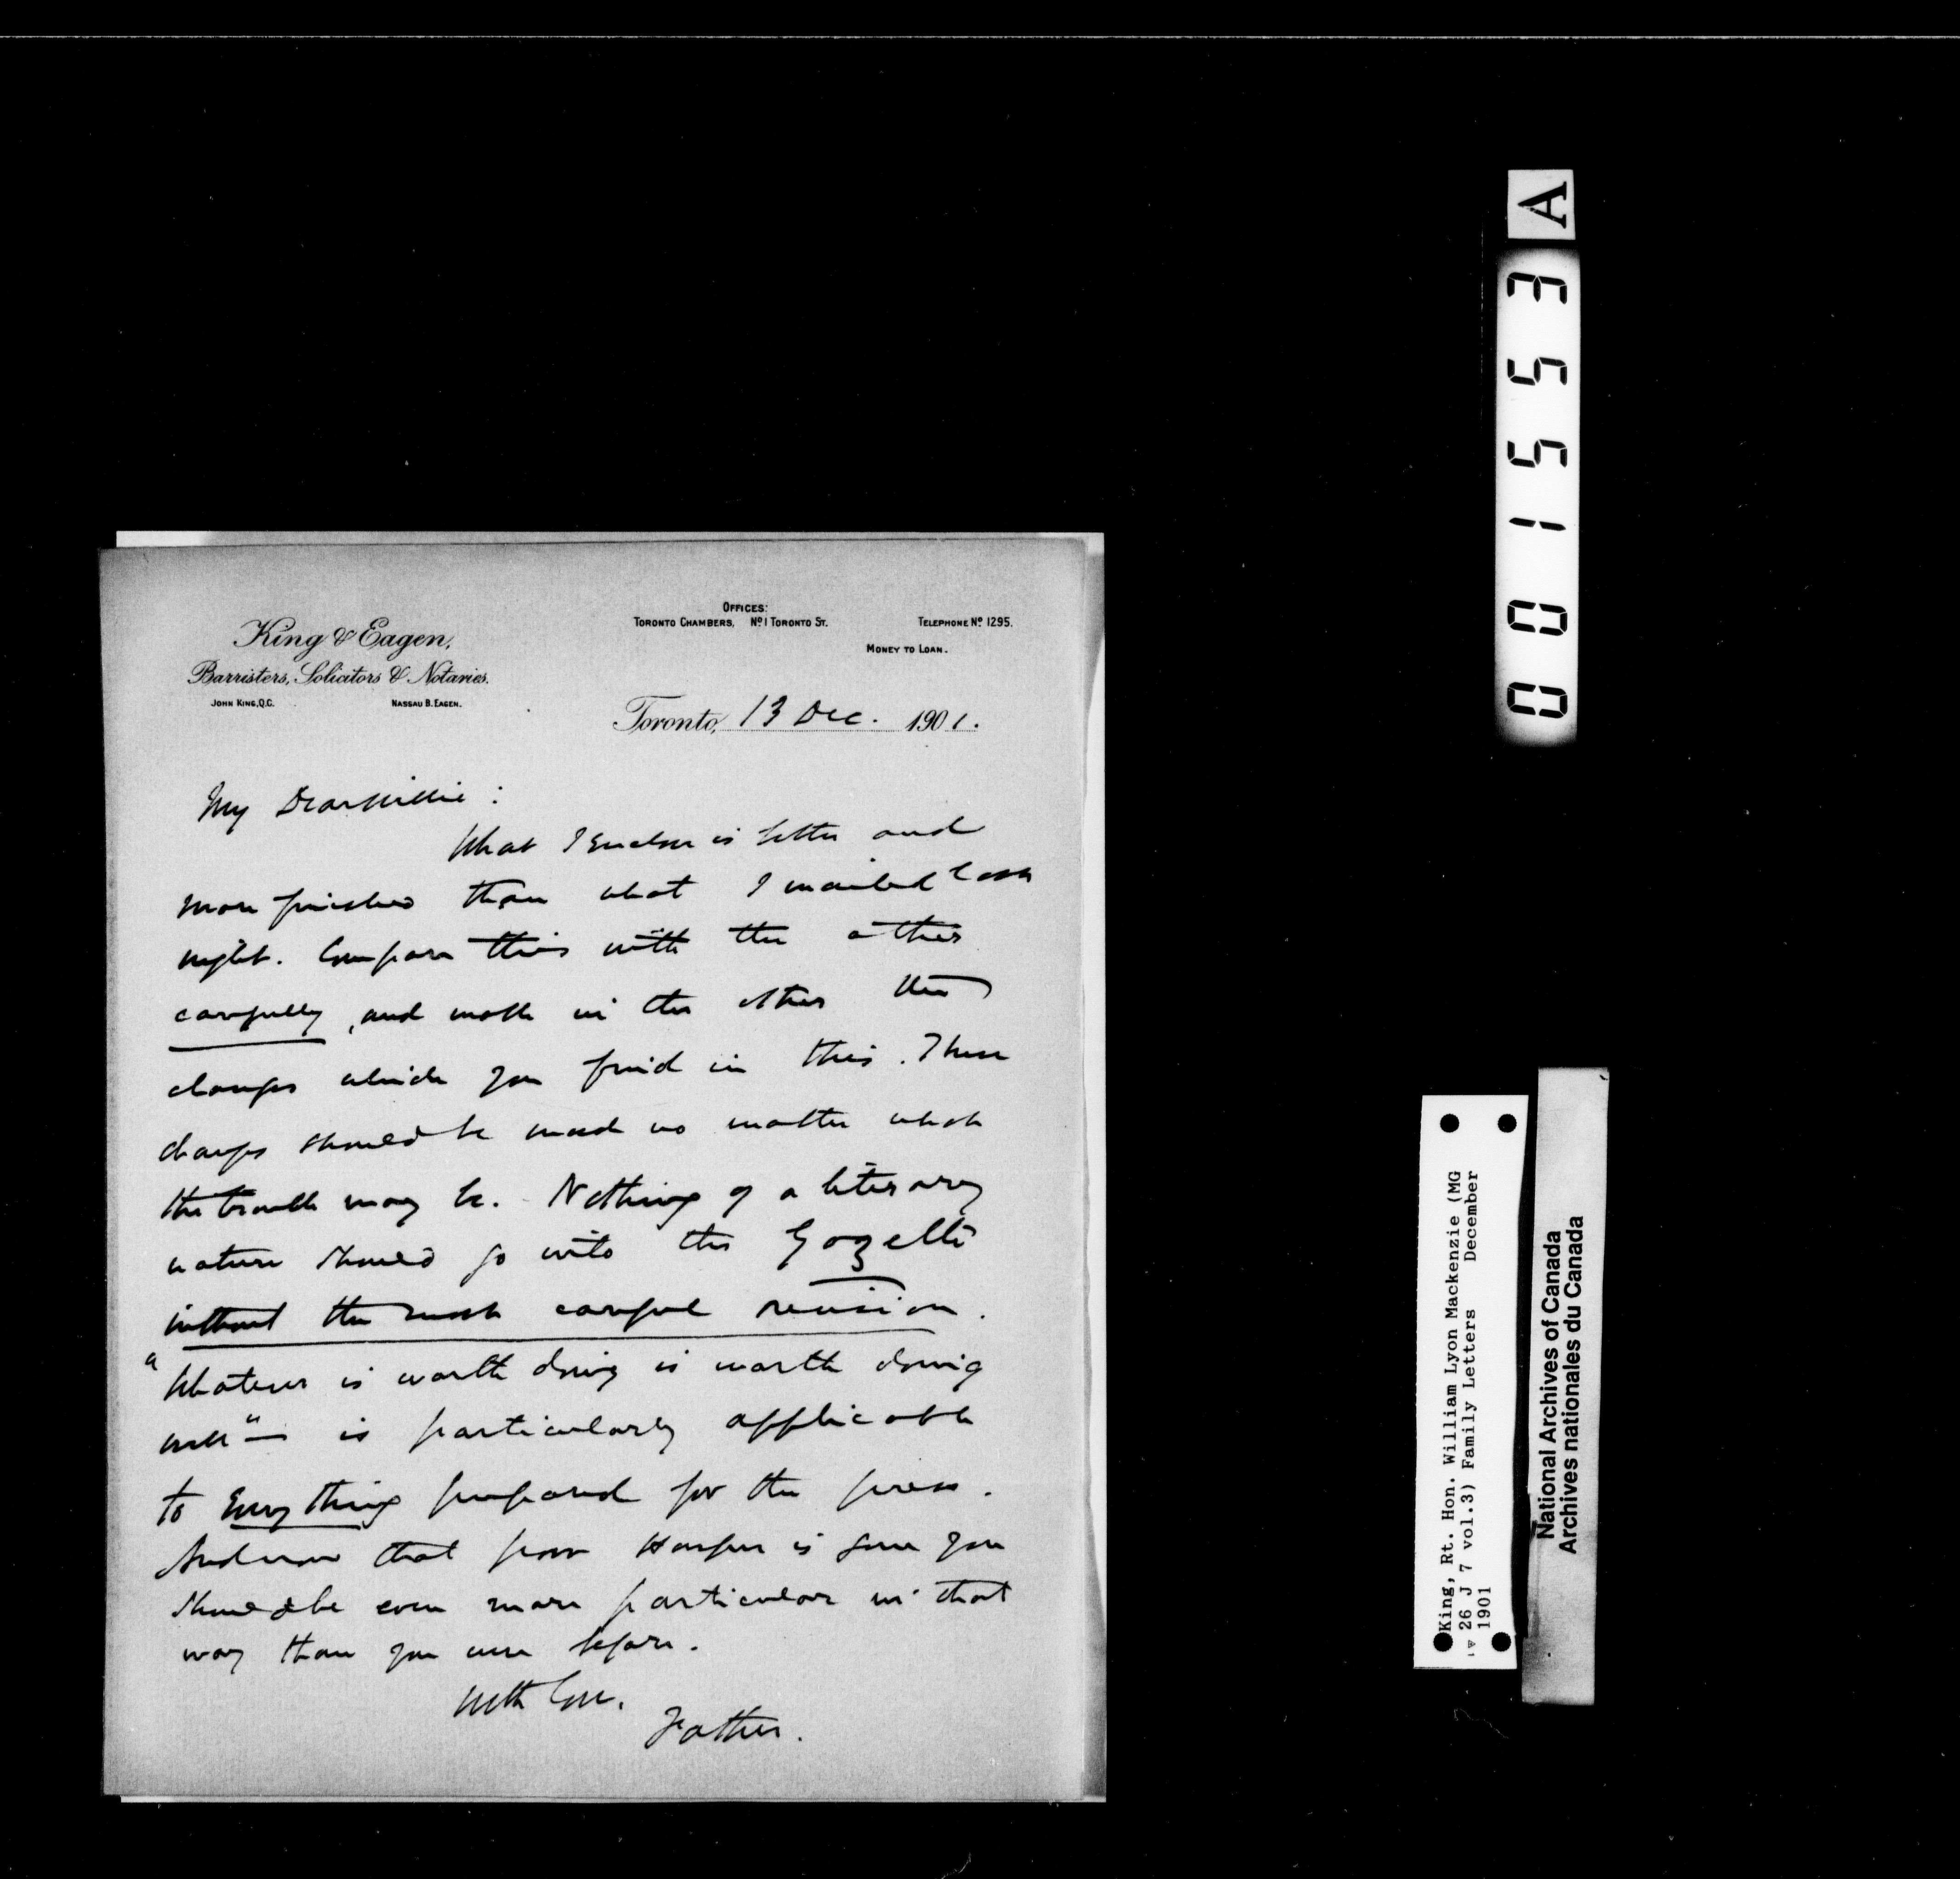 King & Eagen,
Barristers, Solicitors & Notaries.
John King, Q.C. Nassau B. Eagen.
Offices:
Toronto Chambers, No 1 Toronto St. Telephone No 1295.
Money to Loan.
Toronto, 13 Dec. 1901.
My Dear Willie:
What I enclose is better and
more finished than what I mailed last
night. Compare this with the other
carefully, and make in the other the
changes which you find in this. These
changes should be made no matter what
the trouble may be. Nothing of a literary
nature should go into the Gazette
without the most careful revision.
"Whatever is worth doing is worth doing
well" — is particularly applicable
to everything prepared for the press.
And now that poor Harper is gone you
should be even more particular in that
way than you were before.
With love,
Father.
A
001553
King, Rt. Hon. William Lyon Mackenzie (MG
26 J 7 vol.3) Family Letters December
1901
National Archives of Canada
Archives nationales du Canada